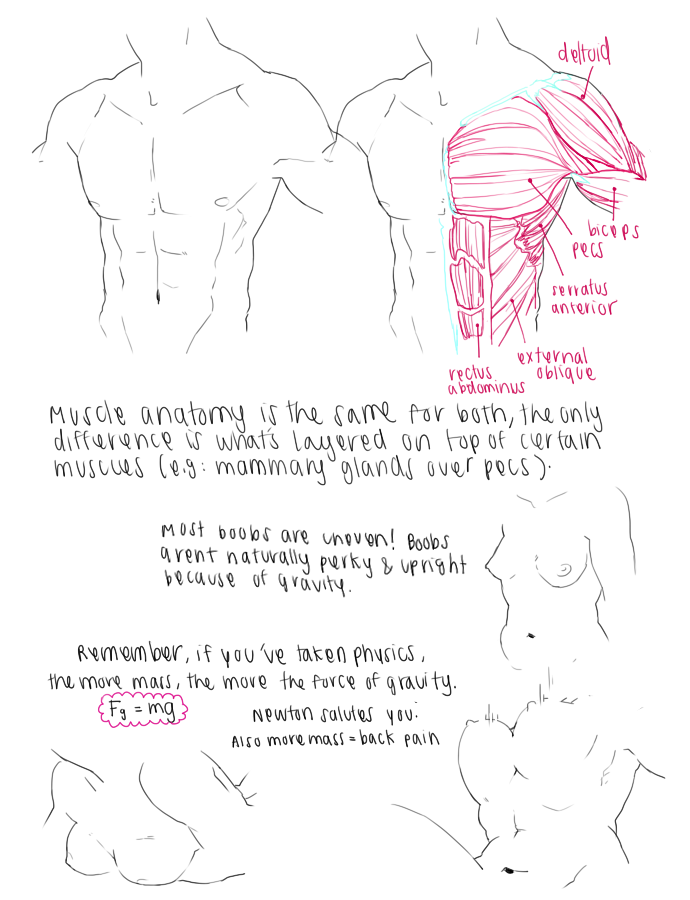 deltoid
biceps
pecs
serratus
anterior
external
oblique
rectus
abdominus
Muscle anatomy is the same for both, the only
difference is what's layered on top of certain
muscles (e.g: mammary glands over pecs).
Most boobs are uneven! Boobs
arent naturally perky & upright
because of gravity.
Remember, if you've taken physics,
the more mass, the more the force of gravity.
Fg = mg
Newton salutes you!
Also more mass = back pain